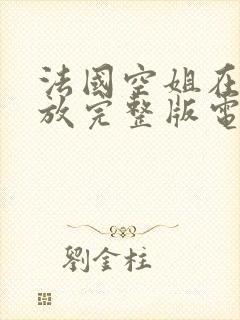 法國空姐在
放完整版電
劉金柱